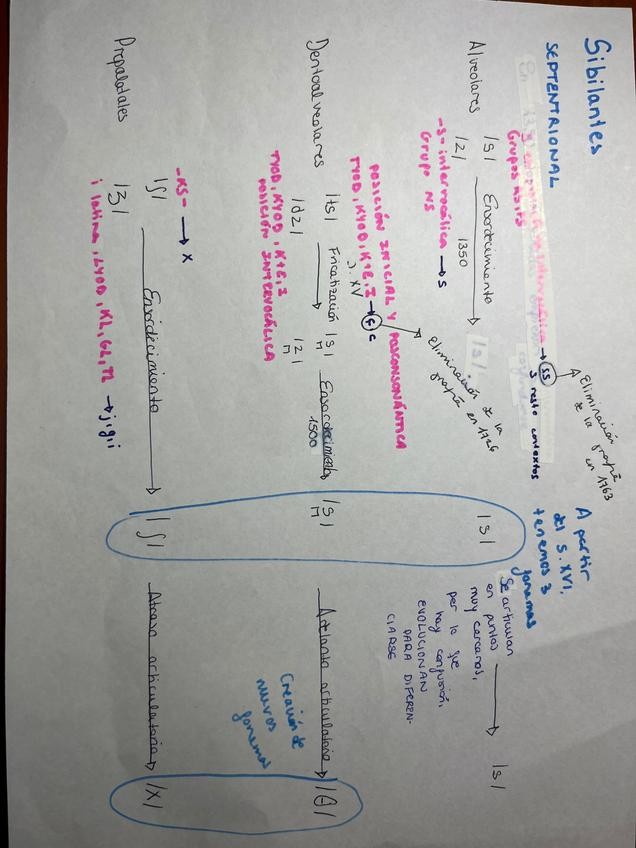 Sibilantes
SEPTENTRIONAL
→ ss
s resto contextos
Eliminación
de la grafía
en 1763
Grupos RS, PS
Alveolares
/s/
/z/
Ensordecimiento
1350
/s/
-s- intervocálica → s
Grupo NS
A partir
del s. XVI,
tenemos 3
fonemas
/s/
Se articulan
en puntos
muy cercanos,
por lo que
hay confusión,
EVOLUCIONAN
PARA DIFEREN-
CIARSE
/s/
POSICIÓN INICIAL Y POSCONSONÁNTICA
TYOD, KYOD, K+E, I → ç c
Eliminación de la
grafía en 1726
Dentoalveolares
/ts/
/dz/
Fricatización
S. XV
/s/
/z/
Ensordecimiento
1500
/s/
Adelanto articulatorio
/θ/
TYOD, KYOD, K+E, I
POSICIÓN INTERVOCÁLICA
Creación de
nuevos
fonemas
-KS- → x
Prepalatales
/ʃ/
/ʒ/
Ensordecimiento
/ʃ/
Atraso articulatorio
/x/
i latina, LYOD, K'L, G'L, T'L → j, g, i